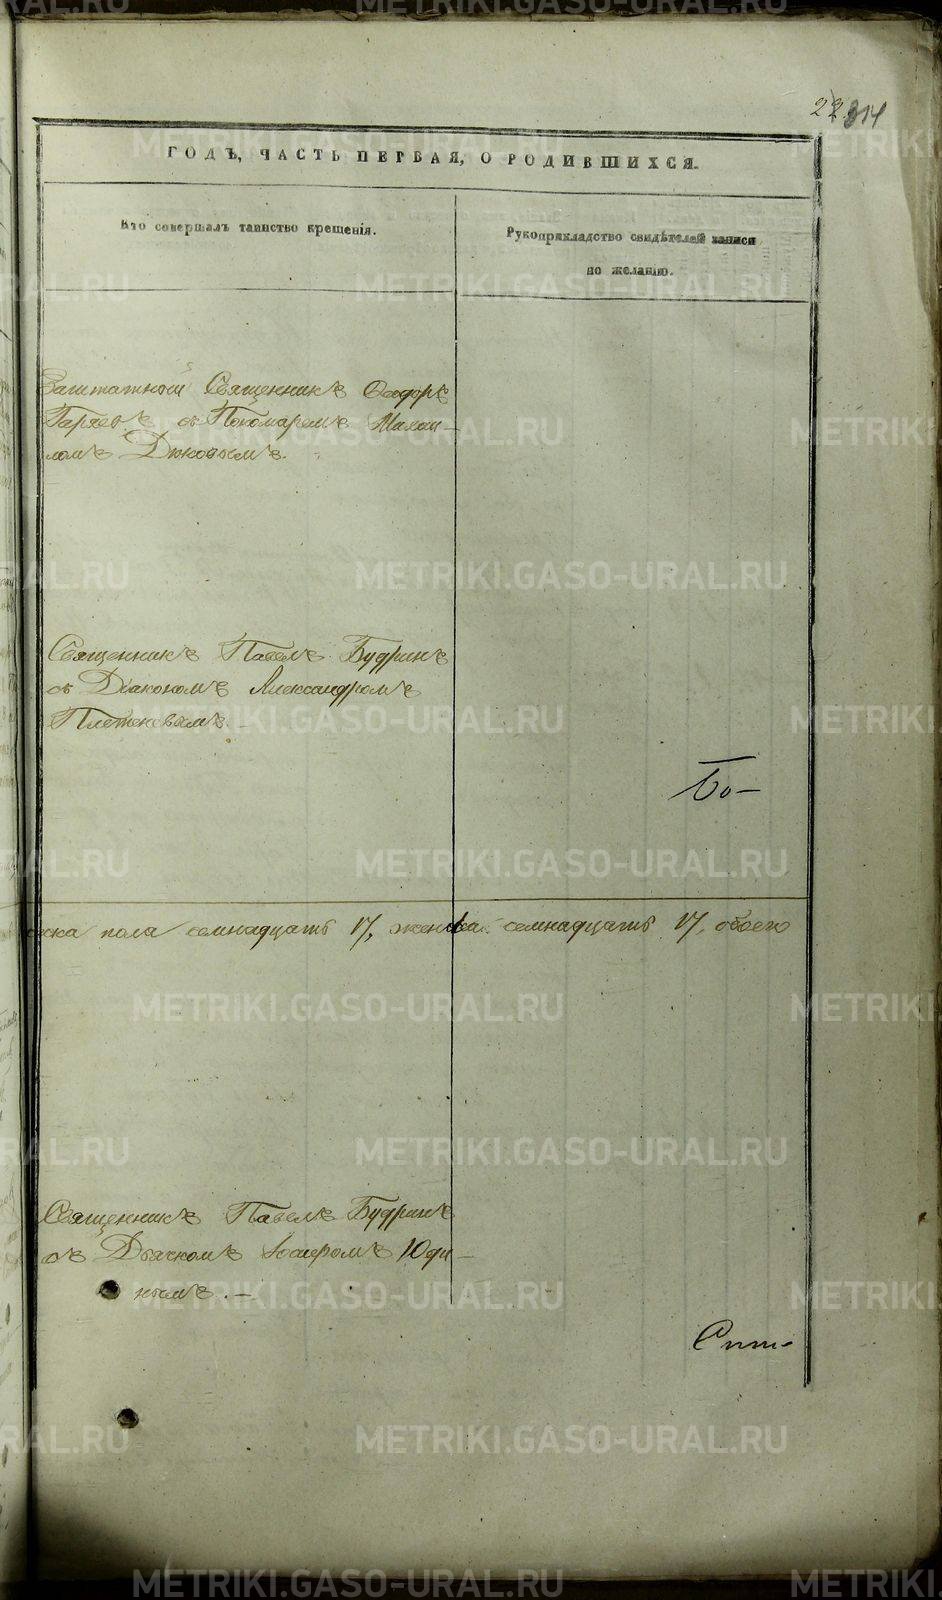 22. 314
ГОДЪ, ЧАСТЬ ПЕРВАЯ, О РОДИВШИХСЯ.
Кто совершалъ таинство крещенія.
Рукоприкладство свидѣтелей записи
по желанію.
Заштатный Священникъ Ѳеодоръ
Гаряевъ съ Пономаремъ Михаи-
ломъ Дюковымъ.
Священникъ Павелъ Будринъ
съ Діакономъ Александромъ
Плетеневымъ.-
Бо-
ска пола семнадцать 17, женска семнадцать 17, обоего
Священникъ Павелъ Будринъ
съ Дьячкомъ Юди-
нымъ.-
METRIKI.GASO-URAL.RU